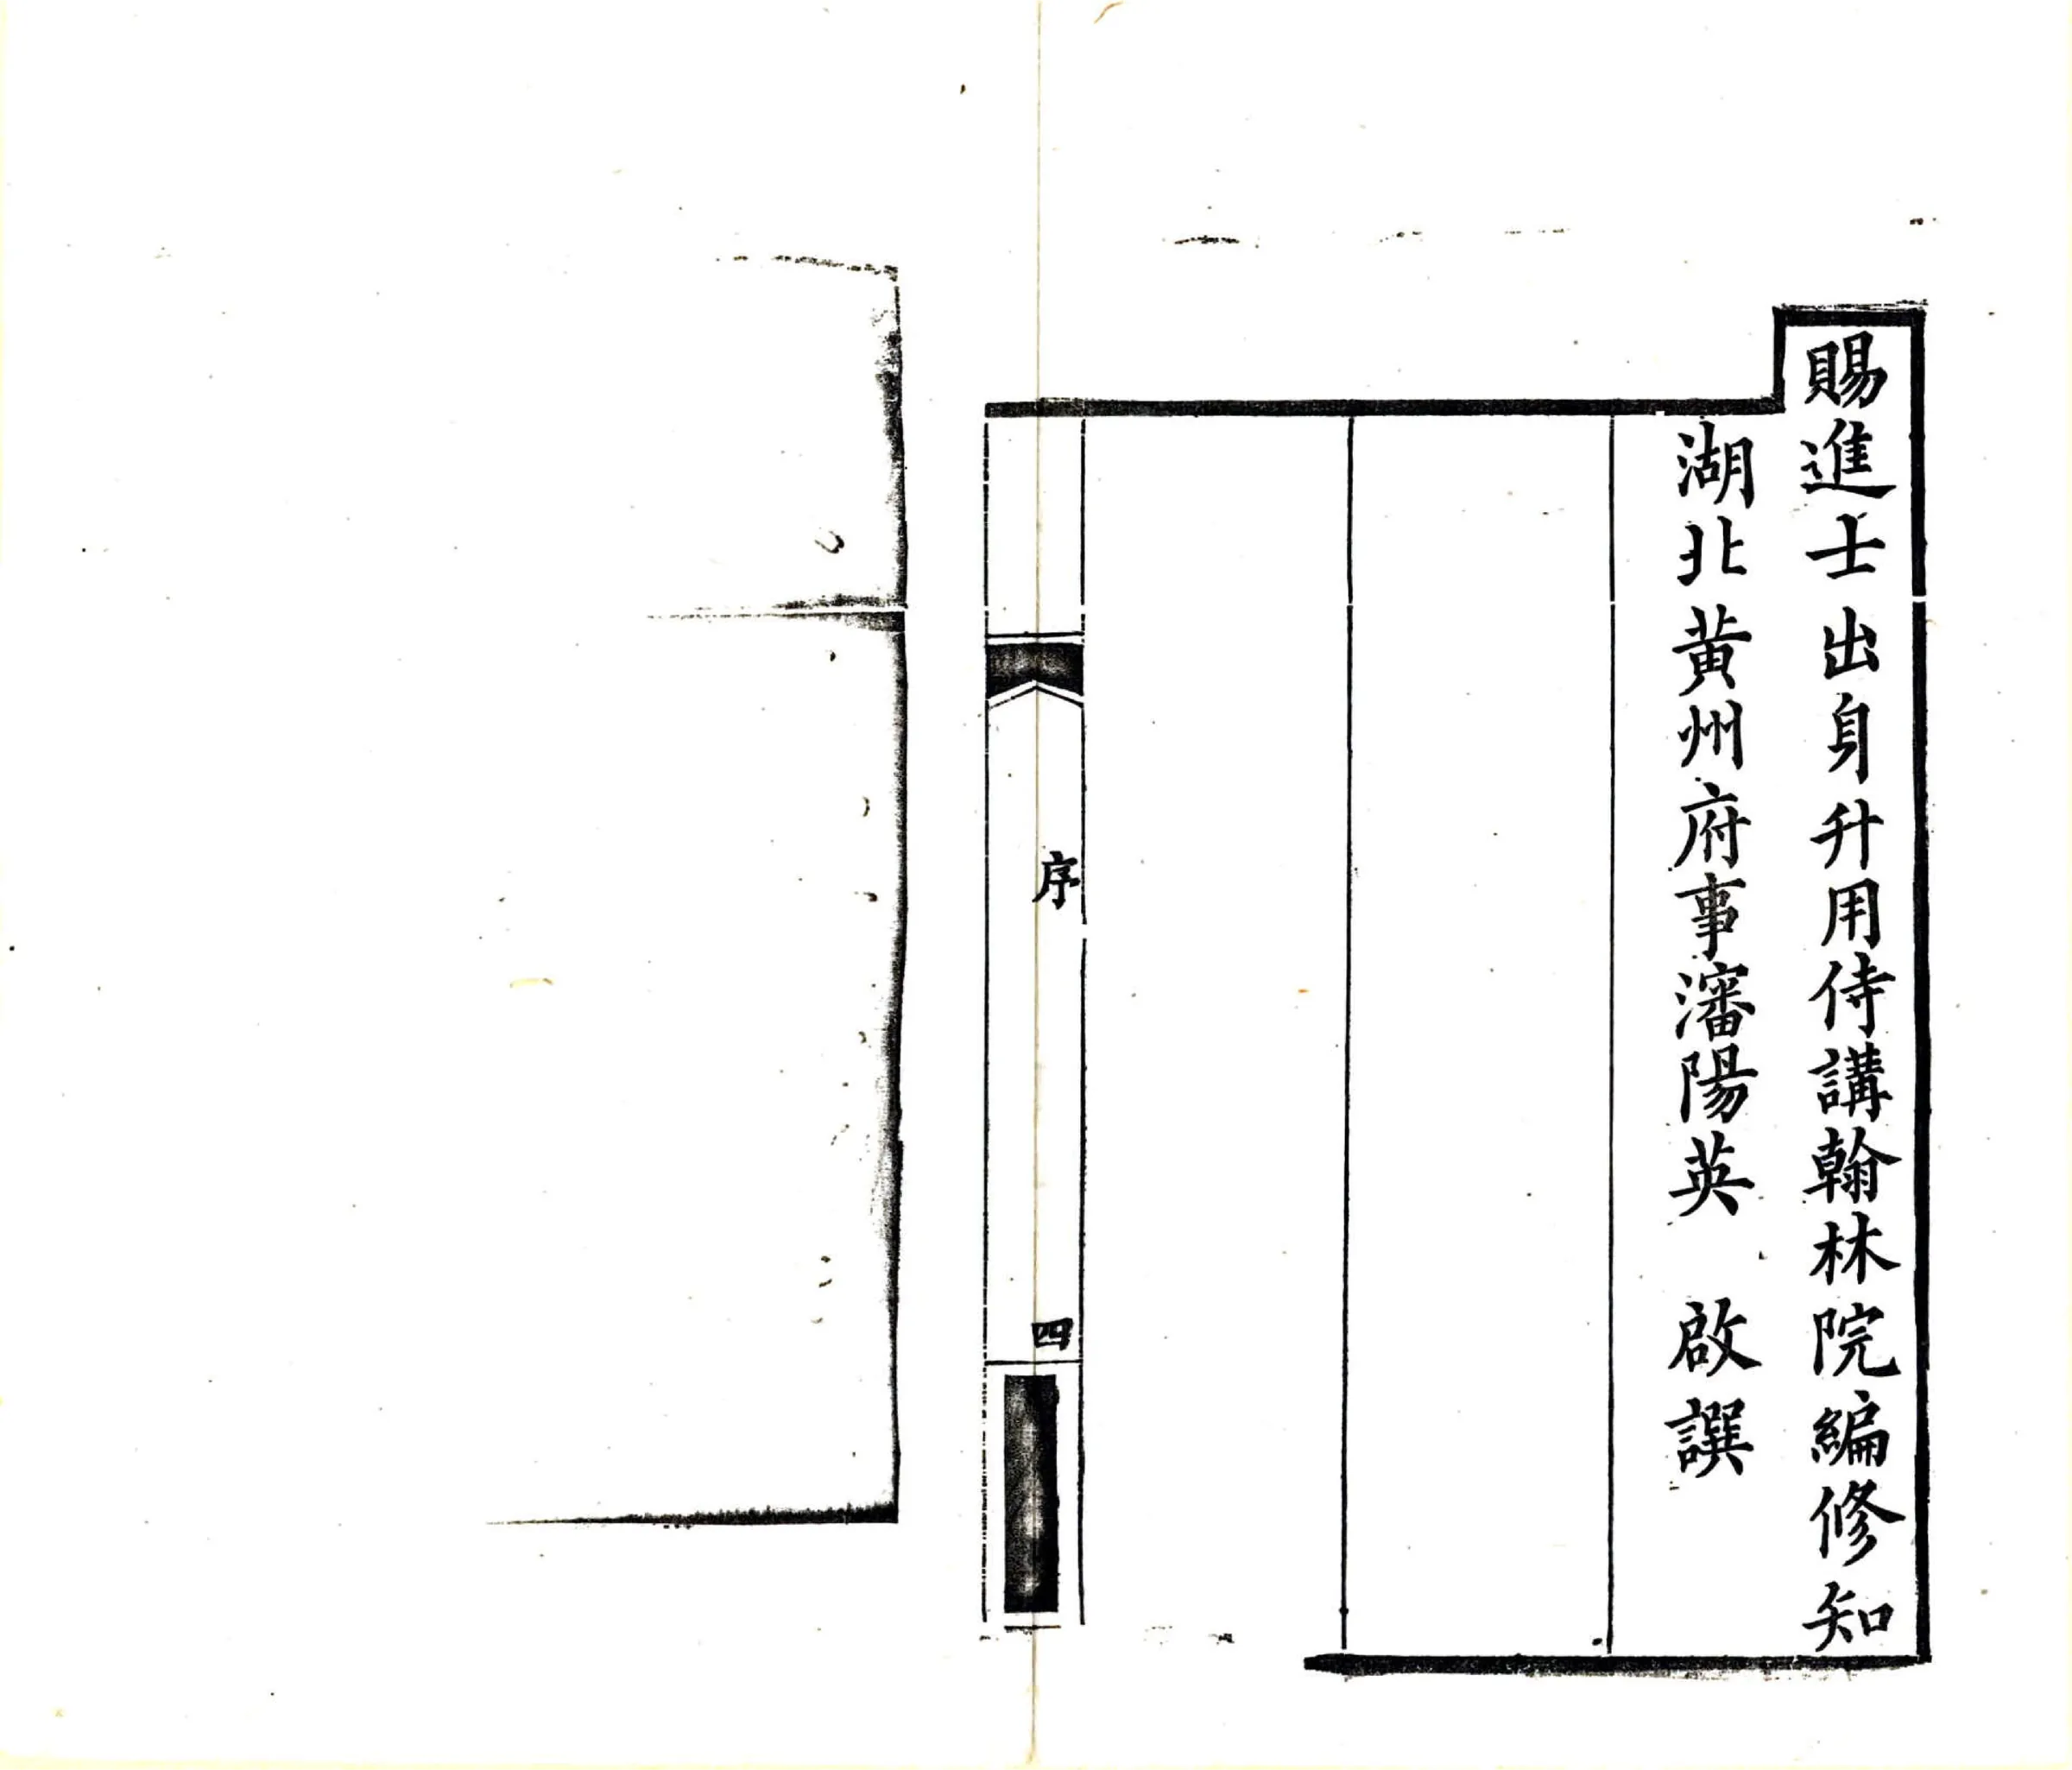 賜進士出身升用侍講翰林院編修知
湖北黃州府事瀋陽英　啟譔
序
四